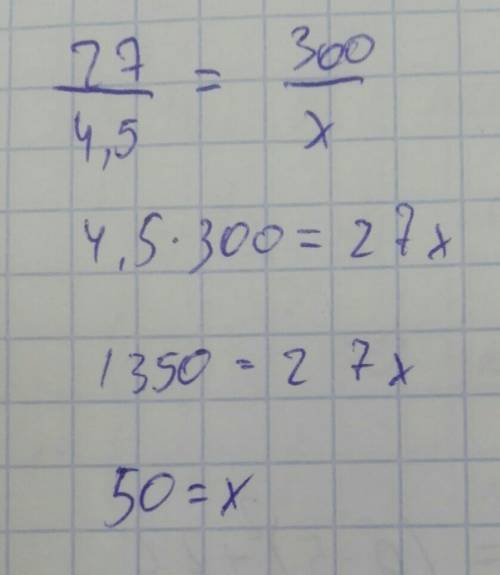 27/4,5 = 300/x
4,5·300 = 27x
1350 = 27x
50 = x